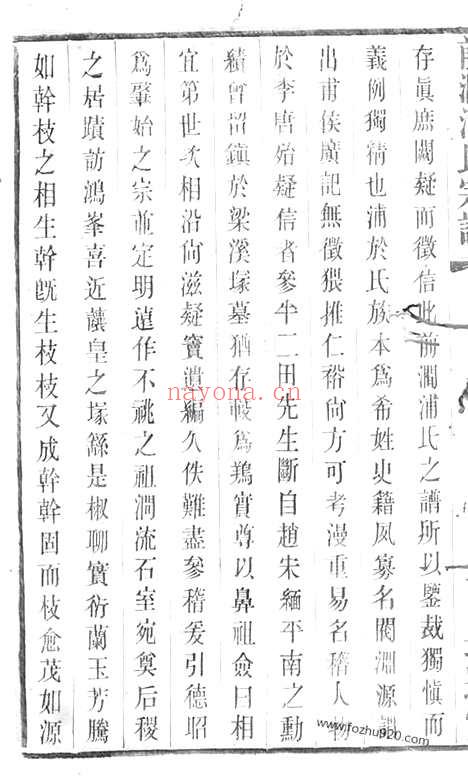 存眞庶闕疑而徵信此前澗浦氏之譜所以鑒裁獨愼而
義例獨精也浦於氏族本爲希姓史籍夙寡名閥淵源
出甫侯廣記無徵猥推仁裕尙方可考漫重易名稽人物
於李唐始疑信者參半二田先生斷自趙宋緬平南之勳
績曾留鎭於梁溪塚墓猶存較爲鵝實尊以鼻祖僉曰相
宜第世次相沿尙滋疑竇遺編久佚難盡參稽爰引德昭
爲肇始之宗並定明遠作不祧之祖澗流石室宛奠后稷
之居蹟訪鴻峯喜近讓皇之塚緜是椒聊實衍蘭玉芳騰
如幹枝之相生幹旣生枝枝又成幹幹固而枝愈茂如源
氏宗譜
nayona.cn
www.fozhu920.com